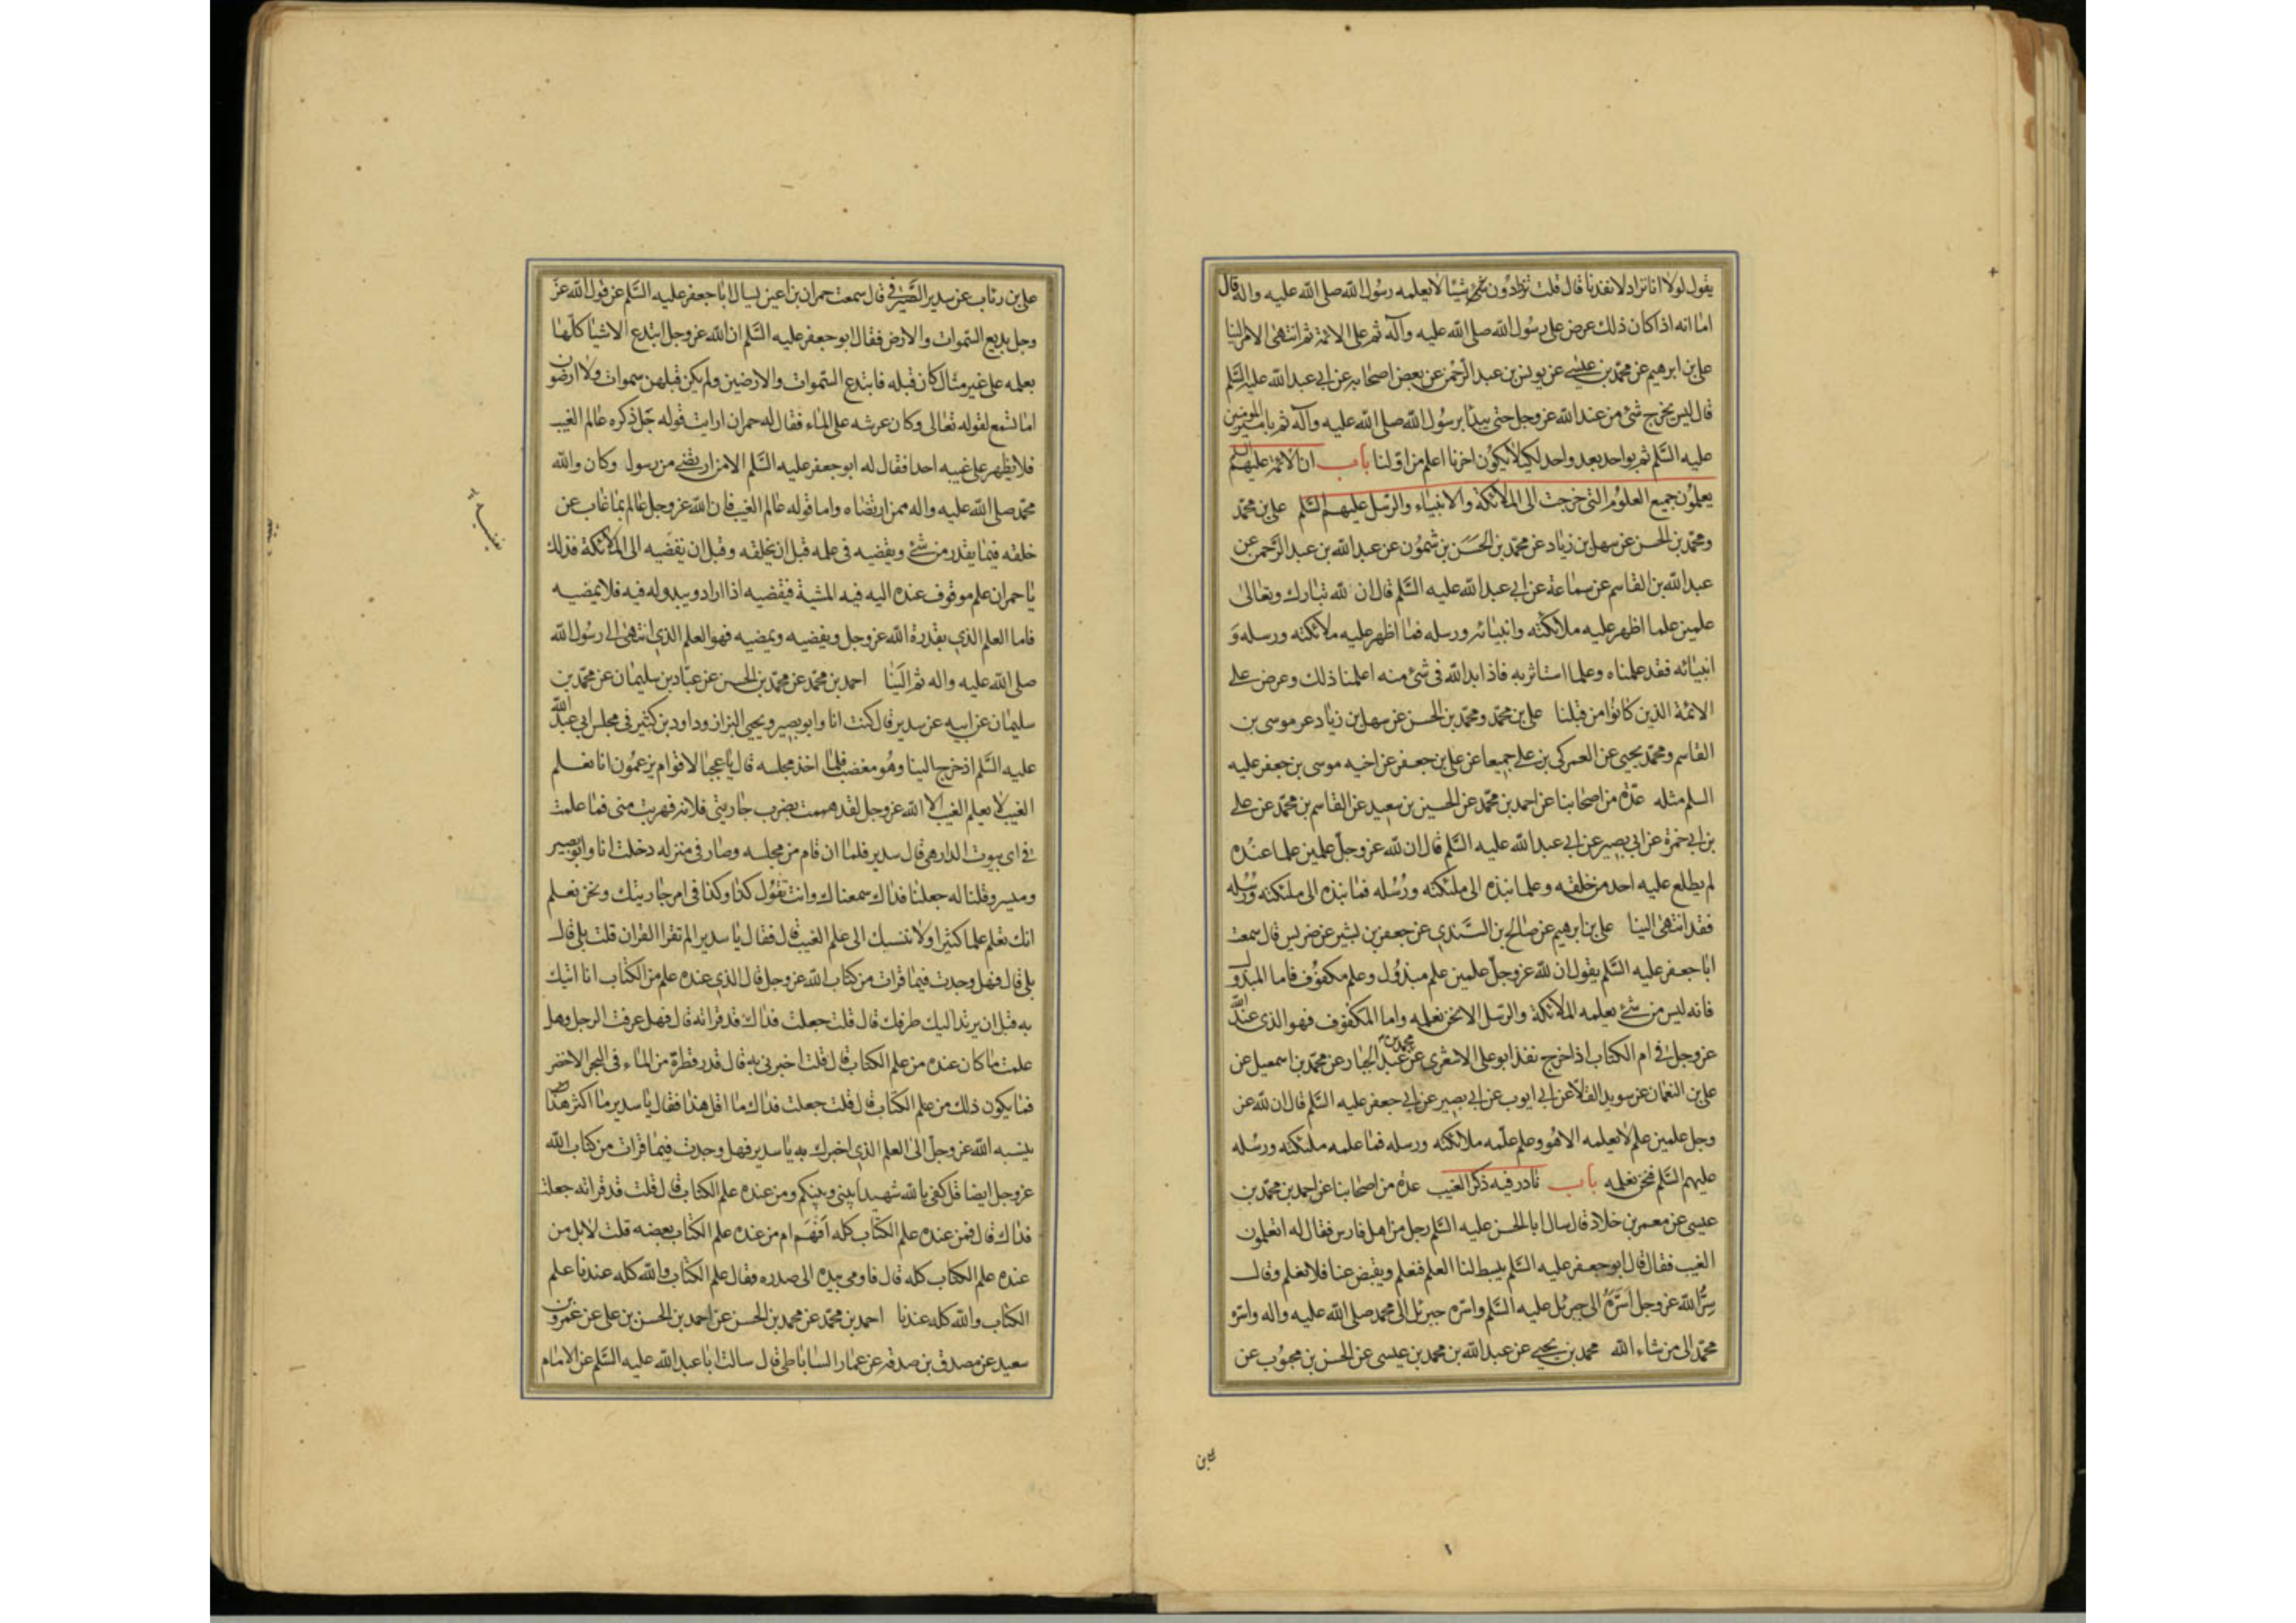 يقول لولا انا نزداد لانفدنا قال قلت تزدادون شيئا لا يعلمه رسول الله صلى الله عليه واله قال
اما انه اذا كان ذلك عرض على رسول الله صلى الله عليه وآله ثم على الائمة ثم انتهى الامر الينا
على بن ابرهيم عن محمد بن عيسى عن يونس بن عبد الرحمن عن بعض اصحابه عن ابى عبد الله عليه السلم
قال ليس يخرج شئ من عند الله عز وجل حتى يبدأ برسول الله صلى الله عليه وآله ثم بامير المومنين
عليه السلم ثم بواحد بعد واحد لكيلا يكون اخرنا اعلم من اولنا باب ان الائمة عليهم السلم
يعلمون جميع العلوم التى خرجت الى الملائكة والانبياء والرسل عليهم السلم على بن محمد
ومحمد بن الحسن عن سهل بن زياد عن محمد بن الحسن بن شمون عن عبد الله بن عبد الرحمن عن
عبد الله بن القاسم عن سماعة عن ابى عبد الله عليه السلم قال ان لله تبارك وتعالى
علمين علما اظهر عليه ملائكته وانبيائه ورسله فما اظهر عليه ملائكته ورسله و
انبيائه فقد علمناه وعلما استاثر به فاذا بدا لله فى شئ منه اعلمنا ذلك وعرض على
الائمة الذين كانوا من قبلنا على بن محمد ومحمد بن الحسن عن سهل بن زياد عن موسى بن
القاسم ومحمد يحيى عن العمركى بن على جميعا عن على بن جعفر عن اخيه موسى بن جعفر عليه
السلم مثله عدة من اصحابنا عن احمد بن محمد عن الحسين بن سعيد عن القاسم بن محمد عن على
بن ابى حمزة عن ابى بصير عن ابى عبد الله عليه السلم قال ان لله عز وجل علمين علما عنده
لم يطلع عليه احد من خلقه وعلما نبذه الى ملئكته ورسله فما نبذه الى ملئكته ورسله
فقد انتهى الينا على بن ابرهيم عن صالح بن السندى عن جعفر بن بشير عن ضريس قال سمعت
ابا جعفر عليه السلم يقول ان لله عز وجل علمين علم مبذول وعلم مكفوف فاما المبذول
فانه ليس من شئ يعلمه الملائكة والرسل الا نحن نعلمه واما المكفوف فهو الذى عند الله
عز وجل فى ام الكتاب اذا خرج نفذ ابو على الاشعرى عن محمد بن عبد الجبار عن محمد بن اسمعيل عن
على بن النعمان عن سويد القلا عن ابى ايوب عن ابى بصير عن ابى جعفر عليه السلم قال ان لله عز
وجل علمين علم لا يعلمه الا هو وعلم علمه ملائكته ورسله فما علمه ملئكته ورسله
عليهم السلم فنحن نعلمه باب نادر فيه ذكر الغيب عدة من اصحابنا عن احمد بن محمد بن
عيسى عن معمر بن خلاد قال سال ابا الحسن عليه السلم رجل من اهل فارس فقال له اتعلمون
الغيب فقال قال ابو جعفر عليه السلم يبسط لنا العلم فنعلم ويقبض عنا فلا نعلم وقال
سر الله عز وجل اسره الى جبرئل عليه السلم واسره جبرئل الى محمد صلى الله عليه واله واسره
محمد الى من شاء الله محمد بن يحيى عن عبد الله بن محمد بن عيسى عن الحسن بن محبوب عن
على بن
على بن رئاب عن سدير الصيرفى قال سمعت حمران بن اعين يسال ابا جعفر عليه السلم عن قول الله عز
وجل بديع السموات والارض فقال ابو جعفر عليه السلم ان الله عز وجل ابتدع الاشيا كلها
بعلمه على غير مثال كان قبله فابتدع السموات والارضين ولم يكن قبلهن سموات ولا ارضون
اما تسمع لقوله تعالى وكان عرشه على الماء فقال له حمران ارايت قوله جل ذكره عالم الغيب
فلا يظهر على غيبه احدا فقال له ابو جعفر عليه السلم الا من ارتضى من رسول وكان والله
محمد صلى الله عليه واله ممن ارتضاه واما قوله عالم الغيب فان الله عز وجل عالم بما غاب عن
خلقه فيما يقدر من شئ ويقضيه فى علمه قبل ان يخلقه وقبل ان يقضيه الى الملائكة فذلك
يا حمران علم موقوف عنده اليه فيه المشية فيقضيه اذا اراد ويبدو له فيه فلا يمضيه
فاما العلم الذى يقدره الله عز وجل ويقضيه ويمضيه فهو العلم الذى انتهى الى رسول الله
صلى الله عليه واله ثم الينا احمد بن محمد عن محمد بن الحسن عن عباد بن سليمان عن محمد بن
سليمان عن ابيه عن سدير قال كنت انا وابو بصير ويحيى البزاز وداود بن كثير فى مجلس ابى عبد الله
عليه السلم اذ خرج الينا وهو مغضب فلما اخذ مجلسه قال يا عجبا لاقوام يزعمون انا نعلم
الغيب لا يعلم الغيب الا الله عز وجل لقد هممت بضرب جاريتى فلانه فهربت منى فما علمت
فى اى بيوت الدار هى قال سدير فلما ان قام من مجلسه وصار فى منزله دخلت انا وابو بصير
وميسر وقلنا له جعلنا فداك سمعناك وانت تقول كذا وكذا فى امر جاريتك ونحن نعلم
انك تعلم علما كثيرا ولا ننسبك الى علم الغيب قال فقال يا سدير الم تقرا القران قلت بلى قال
بلى قال فهل وجدت فيما قرات من كتاب الله عز وجل قال الذى عنده علم من الكتاب انا اتيك
به قبل ان يرتد اليك طرفك قال قلت جعلت فداك قد قراته قال فهل عرفت الرجل وهل
علمت ما كان عنده من علم الكتاب قال قلت اخبرنى به قال قدر قطرة من الماء فى البحر الاخضر
فما يكون ذلك من علم الكتاب قال قلت جعلت فداك ما اقل هذا فقال يا سدير ما اكثر هذا
ينسبه الله عز وجل الى العلم الذى اخبرك به يا سدير فهل وجدت فيما قرات من كتاب الله
عز وجل ايضا قل كفى بالله شهيدا بينى وبينكم ومن عنده علم الكتاب قال قلت قد قراته جعلت
فداك قال فمن عنده علم الكتاب كله افهم ام من عنده علم الكتاب بعضه قلت لا بل من
عنده علم الكتاب كله قال فاومى بيده الى صدره فقال علم الكتاب والله كله عندنا علم
الكتاب والله كله عندنا احمد بن محمد عن محمد بن الحسن عن احمد بن الحسن بن على عن عمرو بن
سعيد عن مصدق بن صدقه عن عمار الساباطى قال سالت ابا عبد الله عليه السلم عن الامام